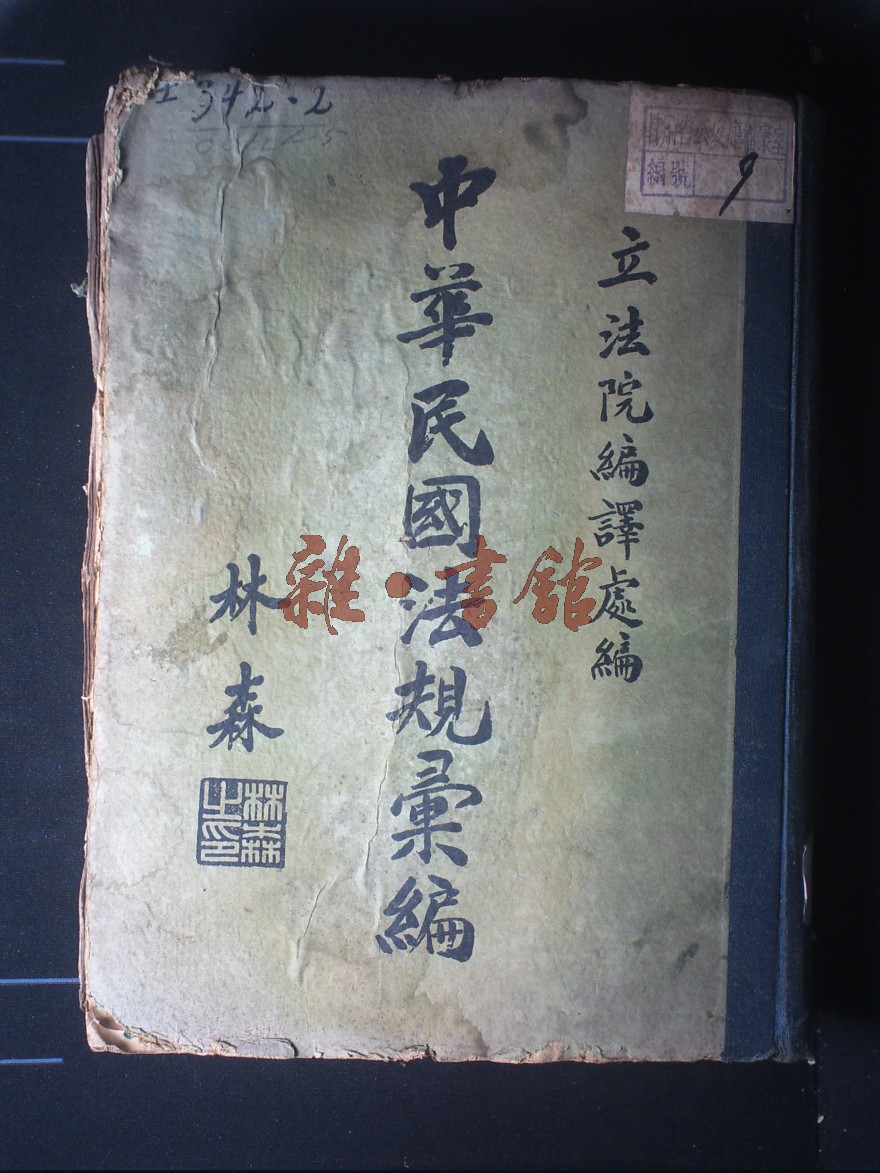 342.2
編號
9
立法院編譯處編
中華民國法規彙編
林森
林森之印
雜·書館